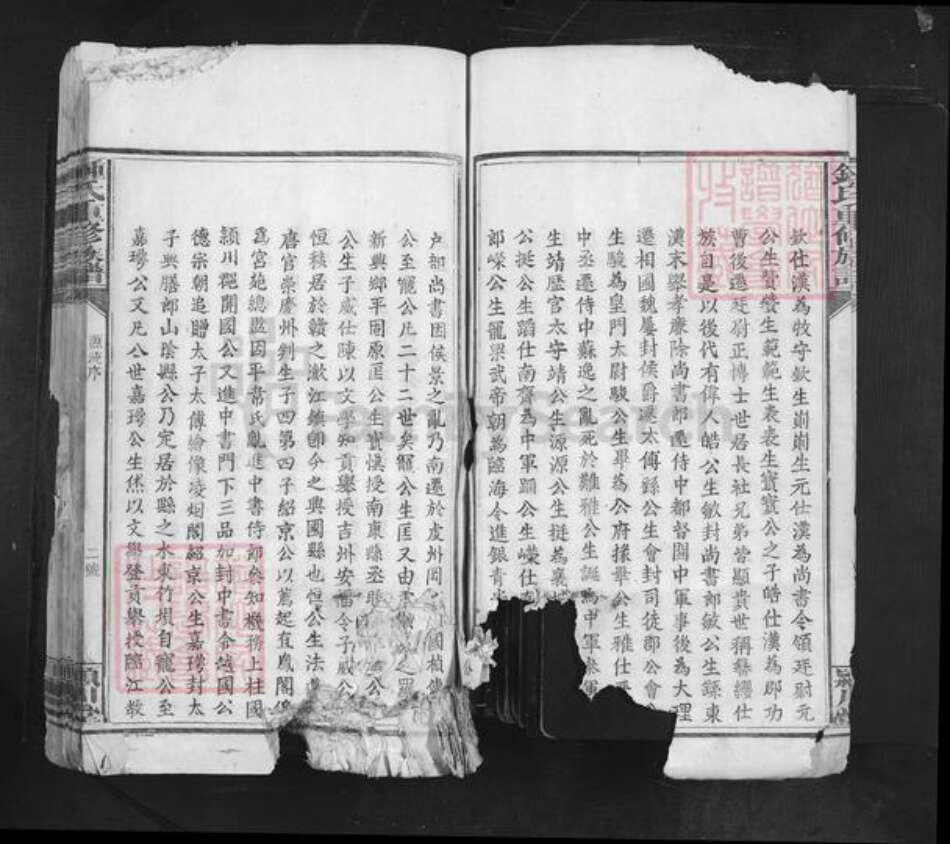 鍾氏重修族譜
欽仕漢為牧守欽生崱崱生元仕漢為尚書令領廷尉元
公生贊贊生範範生表表生寶寶公之子皓仕漢為郡功
曹後遷廷尉正博士世居長社兄弟皆顯貴世稱簪纓仕
族自是以後代有偉人皓公生敏封尚書郎敏公生繇東
漢末舉孝廉除尚書郎遷侍中都督關中軍事後為大理
遷相國魏屢封侯爵遷太傅繇公生會封司徒郡公會
生駿為皇門太尉駿公生曅為公府掾曅公生雅仕晉
中丞遷侍中蘇逸之亂死於難雅公生誕為中軍參軍
生靖歷官太守靖公生源源公生挺為襄
公挺公生蹈仕南齊為中軍蹈公生嶸仕
郎嶸公生寵梁武帝朝為臨海令進銀青
戶部尚書因侯景之亂乃南遷於虔州
公至寵公凡二十二世矣寵公生匡又由
新興鄉平固原匡公生寶慎授南康縣丞
公生子威仕陳以文學知貢舉授吉州安福令子威公
恒發居於贛之瀲江鎮即今之興國縣也恒公生法
唐官崇慶州刺生子四第四子紹京公以薦起直鳳閣
為宮苑總監因平韋氏亂進中書侍郎參知機務上柱國
潁川郡開國公又進中書門下三品加封中書令越國公
德宗朝追贈太子太傅繪像凌烟閣紹京公生嘉璕封太
子典膳郎山陰縣公乃定居於縣之水東竹埧自寵公至
嘉璕公又凡八世嘉璕公生㷊以文學登貢舉授臨江教
鍾氏重修族譜
源流序
二號
潁川堂
FamilySearch